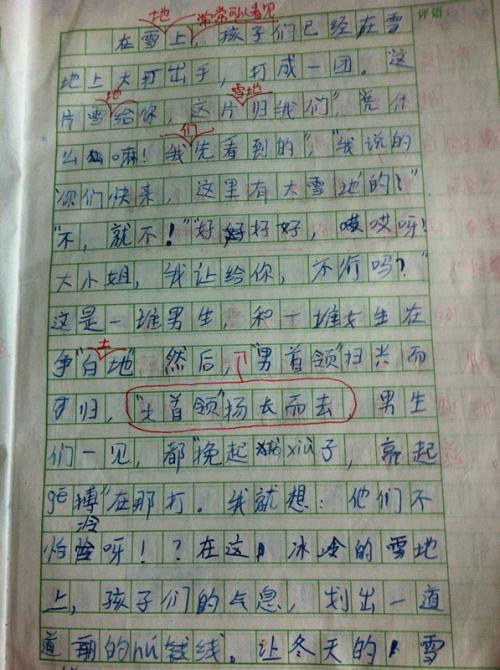 评语
地 常常可以看见
在雪上，孩子们已经在雪
地上大打出手，打成一团。这
地 雪地
片雪给你，这片归我们"，凭什
们
么嘛！我先看到的""我说的
你们快来，这里有大雪地的！"
"不，就不！"好好好好，哎哎呀！
大小姐，我让给你，不
这是一堆男生，和一堆女生在
土
争"白地"然后，"男首领"扫兴而
归，"女首领"扬长而去，男生
们一见，都"挽起xiù子，亮起
gē搏"在那打。我就想：他们不
冷
怕呀！？在这，冰冷的雪地
上，孩子们的气息，划出一道
道的nú线。让冬天的，雪